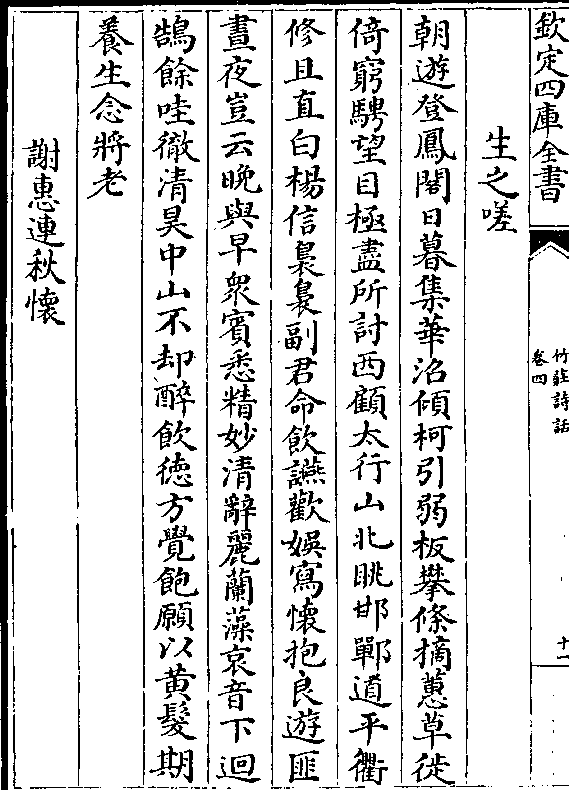 欽定四庫全書
竹莊詩話
卷四
十一
生之嗟
朝遊登鳳閣日暮集華沼傾柯引弱板攀條摘蕙草徙
倚窮騁望目極盡所討西顧太行山北眺邯鄲道平衢
修且直白楊信裊裊副君命飲讌歡娛寫懷抱良遊匪
晝夜豈云晚與早衆賓悉精妙清辭麗蘭藻哀音下迴
鵠餘哇徹清昊中山不却醉飲徳方覺飽願以黃髮期
養生念將老
謝惠連秋懷